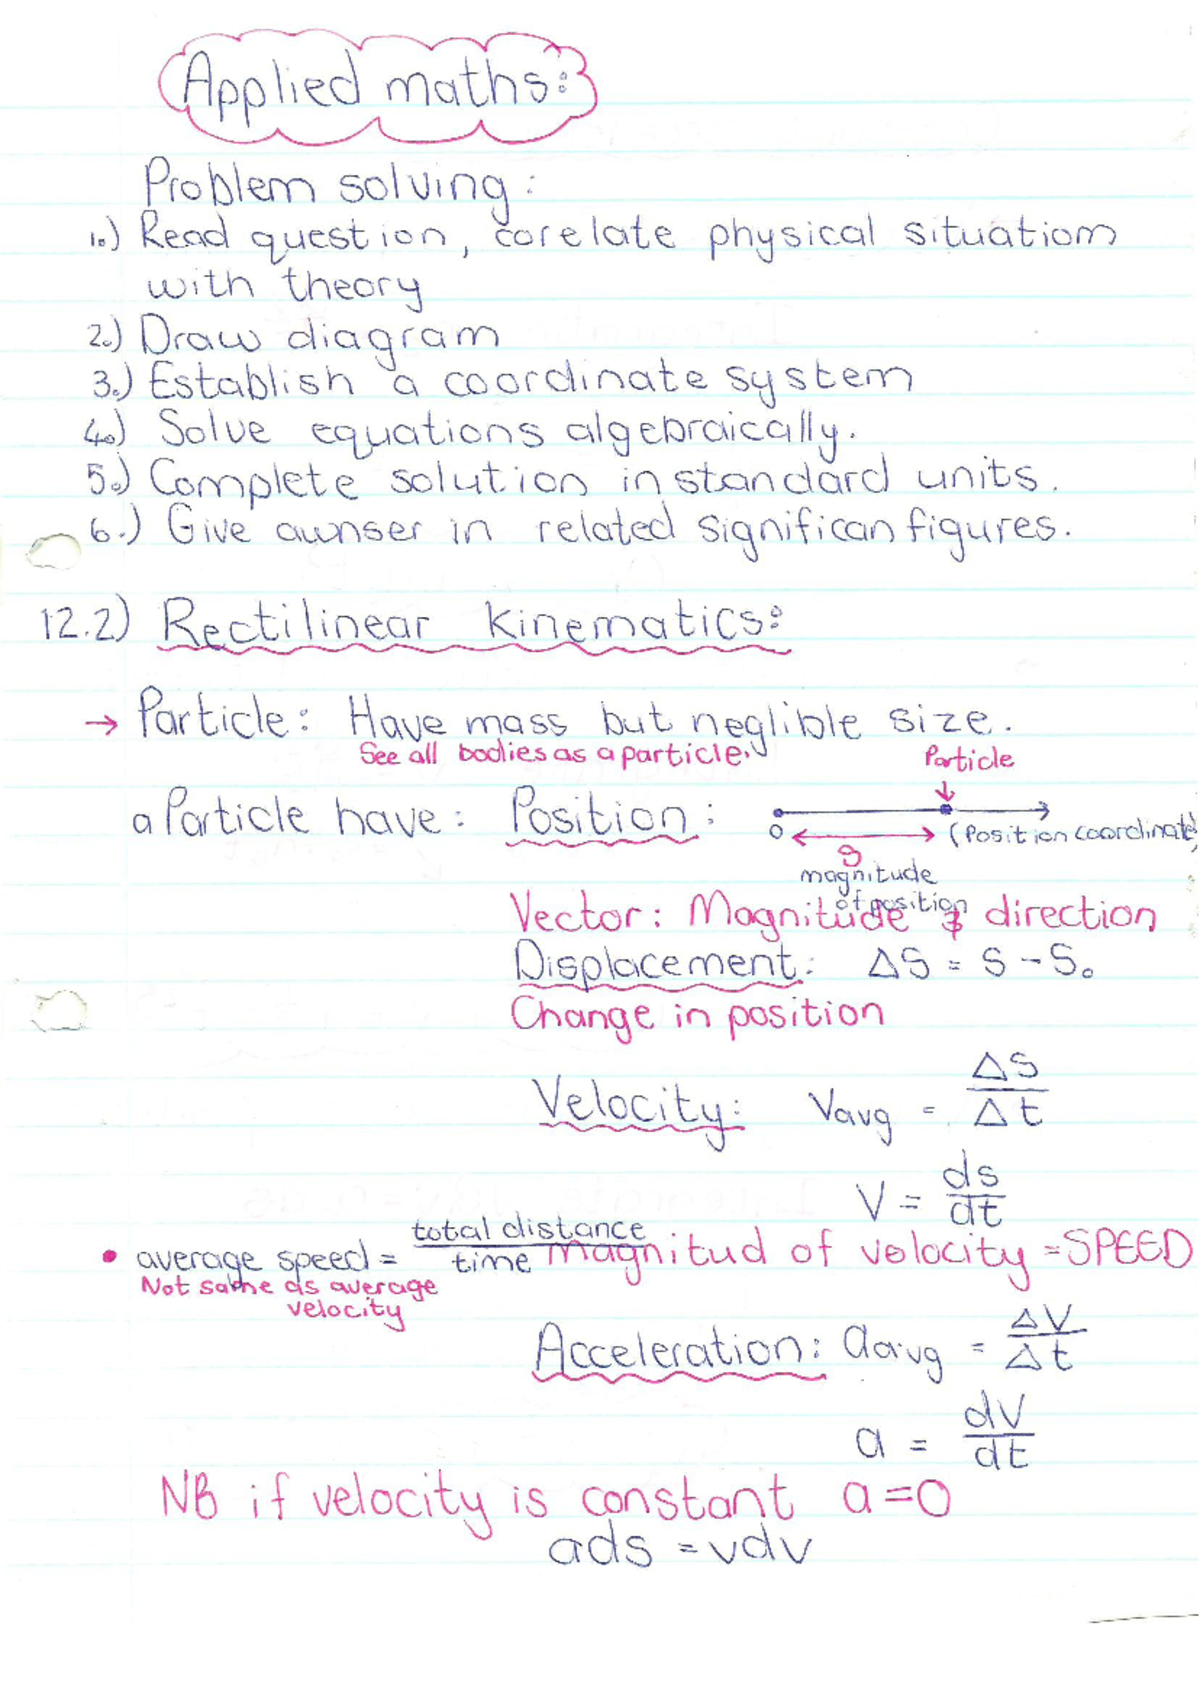 Applied maths:
Problem solving:
1.) Read question, corelate physical situation
with theory
2.) Draw diagram
3.) Establish a coordinate system
4.) Solve equations algebraically.
5.) Complete solution in standard units.
6.) Give awnser in related significan figures.
12.2) Rectilinear Kinematics:
→ Particle: Have mass but neglible size.
See all bodies as a particle.
Particle
a Particle have: Position:
0 (Position coordinate)
s
magnitude
of position
Vector: Magnitude & direction
Displacement: Δs = s - s₀
Change in position
Velocity: Vavg = Δs/Δt
V = ds/dt
• average speed = total distance/time magnitud of velocity = SPEED
Not same as average
velocity
Acceleration: aavg = ΔV/Δt
a = dV/dt
NB if velocity is constant a=0
ads = vdv